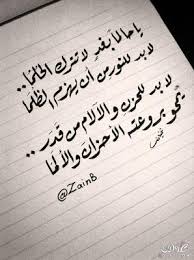 يا حالماً بغدٍ لا تترك الحلما..
لا بد للنور من أن يهزم الظلما
لا بد للحزن والآلام من قدر..
يمحو بروعته الأحزان والألما
@ZainB